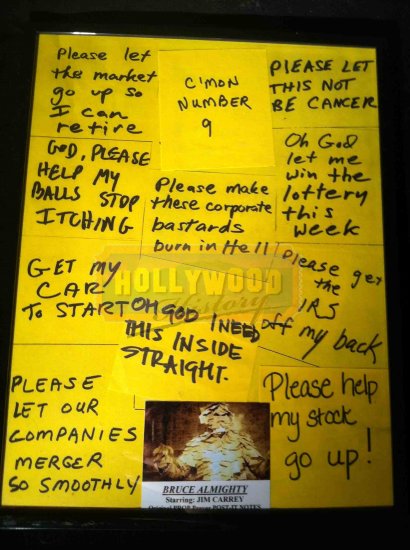 Please let
the market
go up so
I can
retire
C'MON
NUMBER
9
PLEASE LET
THIS NOT
BE CANCER
GOD, PLEASE
HELP MY
BALLS STOP
ITCHING
Please make
these corporate
bastards
burn in Hell
Oh God
let me
win the
lottery
this
week
GET MY
CAR
TO START
OH GOD I NEED
THIS INSIDE
STRAIGHT.
Please get
the
IRS
off my back
HOLLYWOOD
History
PLEASE
LET OUR
COMPANIES
MERGER
GO SMOOTHLY
Please help
my stock
go up!
BRUCE ALMIGHTY
Starring: JIM CARREY
Original PROP Prayer POST-IT NOTES